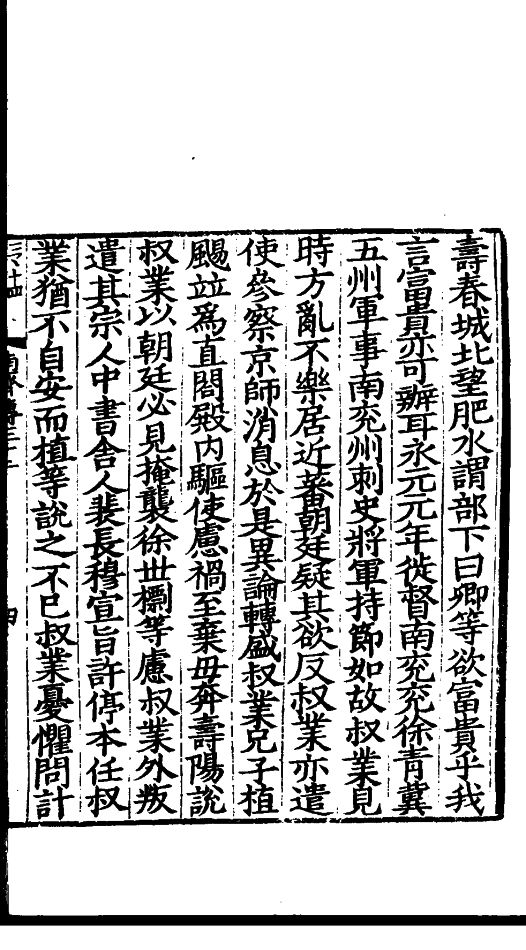 壽春城北望肥水謂部下曰卿等欲富貴乎我
言富貴亦可辦耳永元元年徙督南兖兖徐青冀
五州軍事南兖州刺史將軍持節如故叔業見
時方亂不樂居近蕃朝廷疑其欲反叔業亦遣
使參察京師消息於是異論轉盛叔業兄子植
颺竝爲直閤殿内驅使慮禍至棄母奔壽陽説
叔業以朝廷必見掩襲徐世檦等慮叔業外叛
遣其宗人中書舎人裴長穆宣旨許停本任叔
業猶不自安而植等説之不已叔業憂懼問計
南齊
四